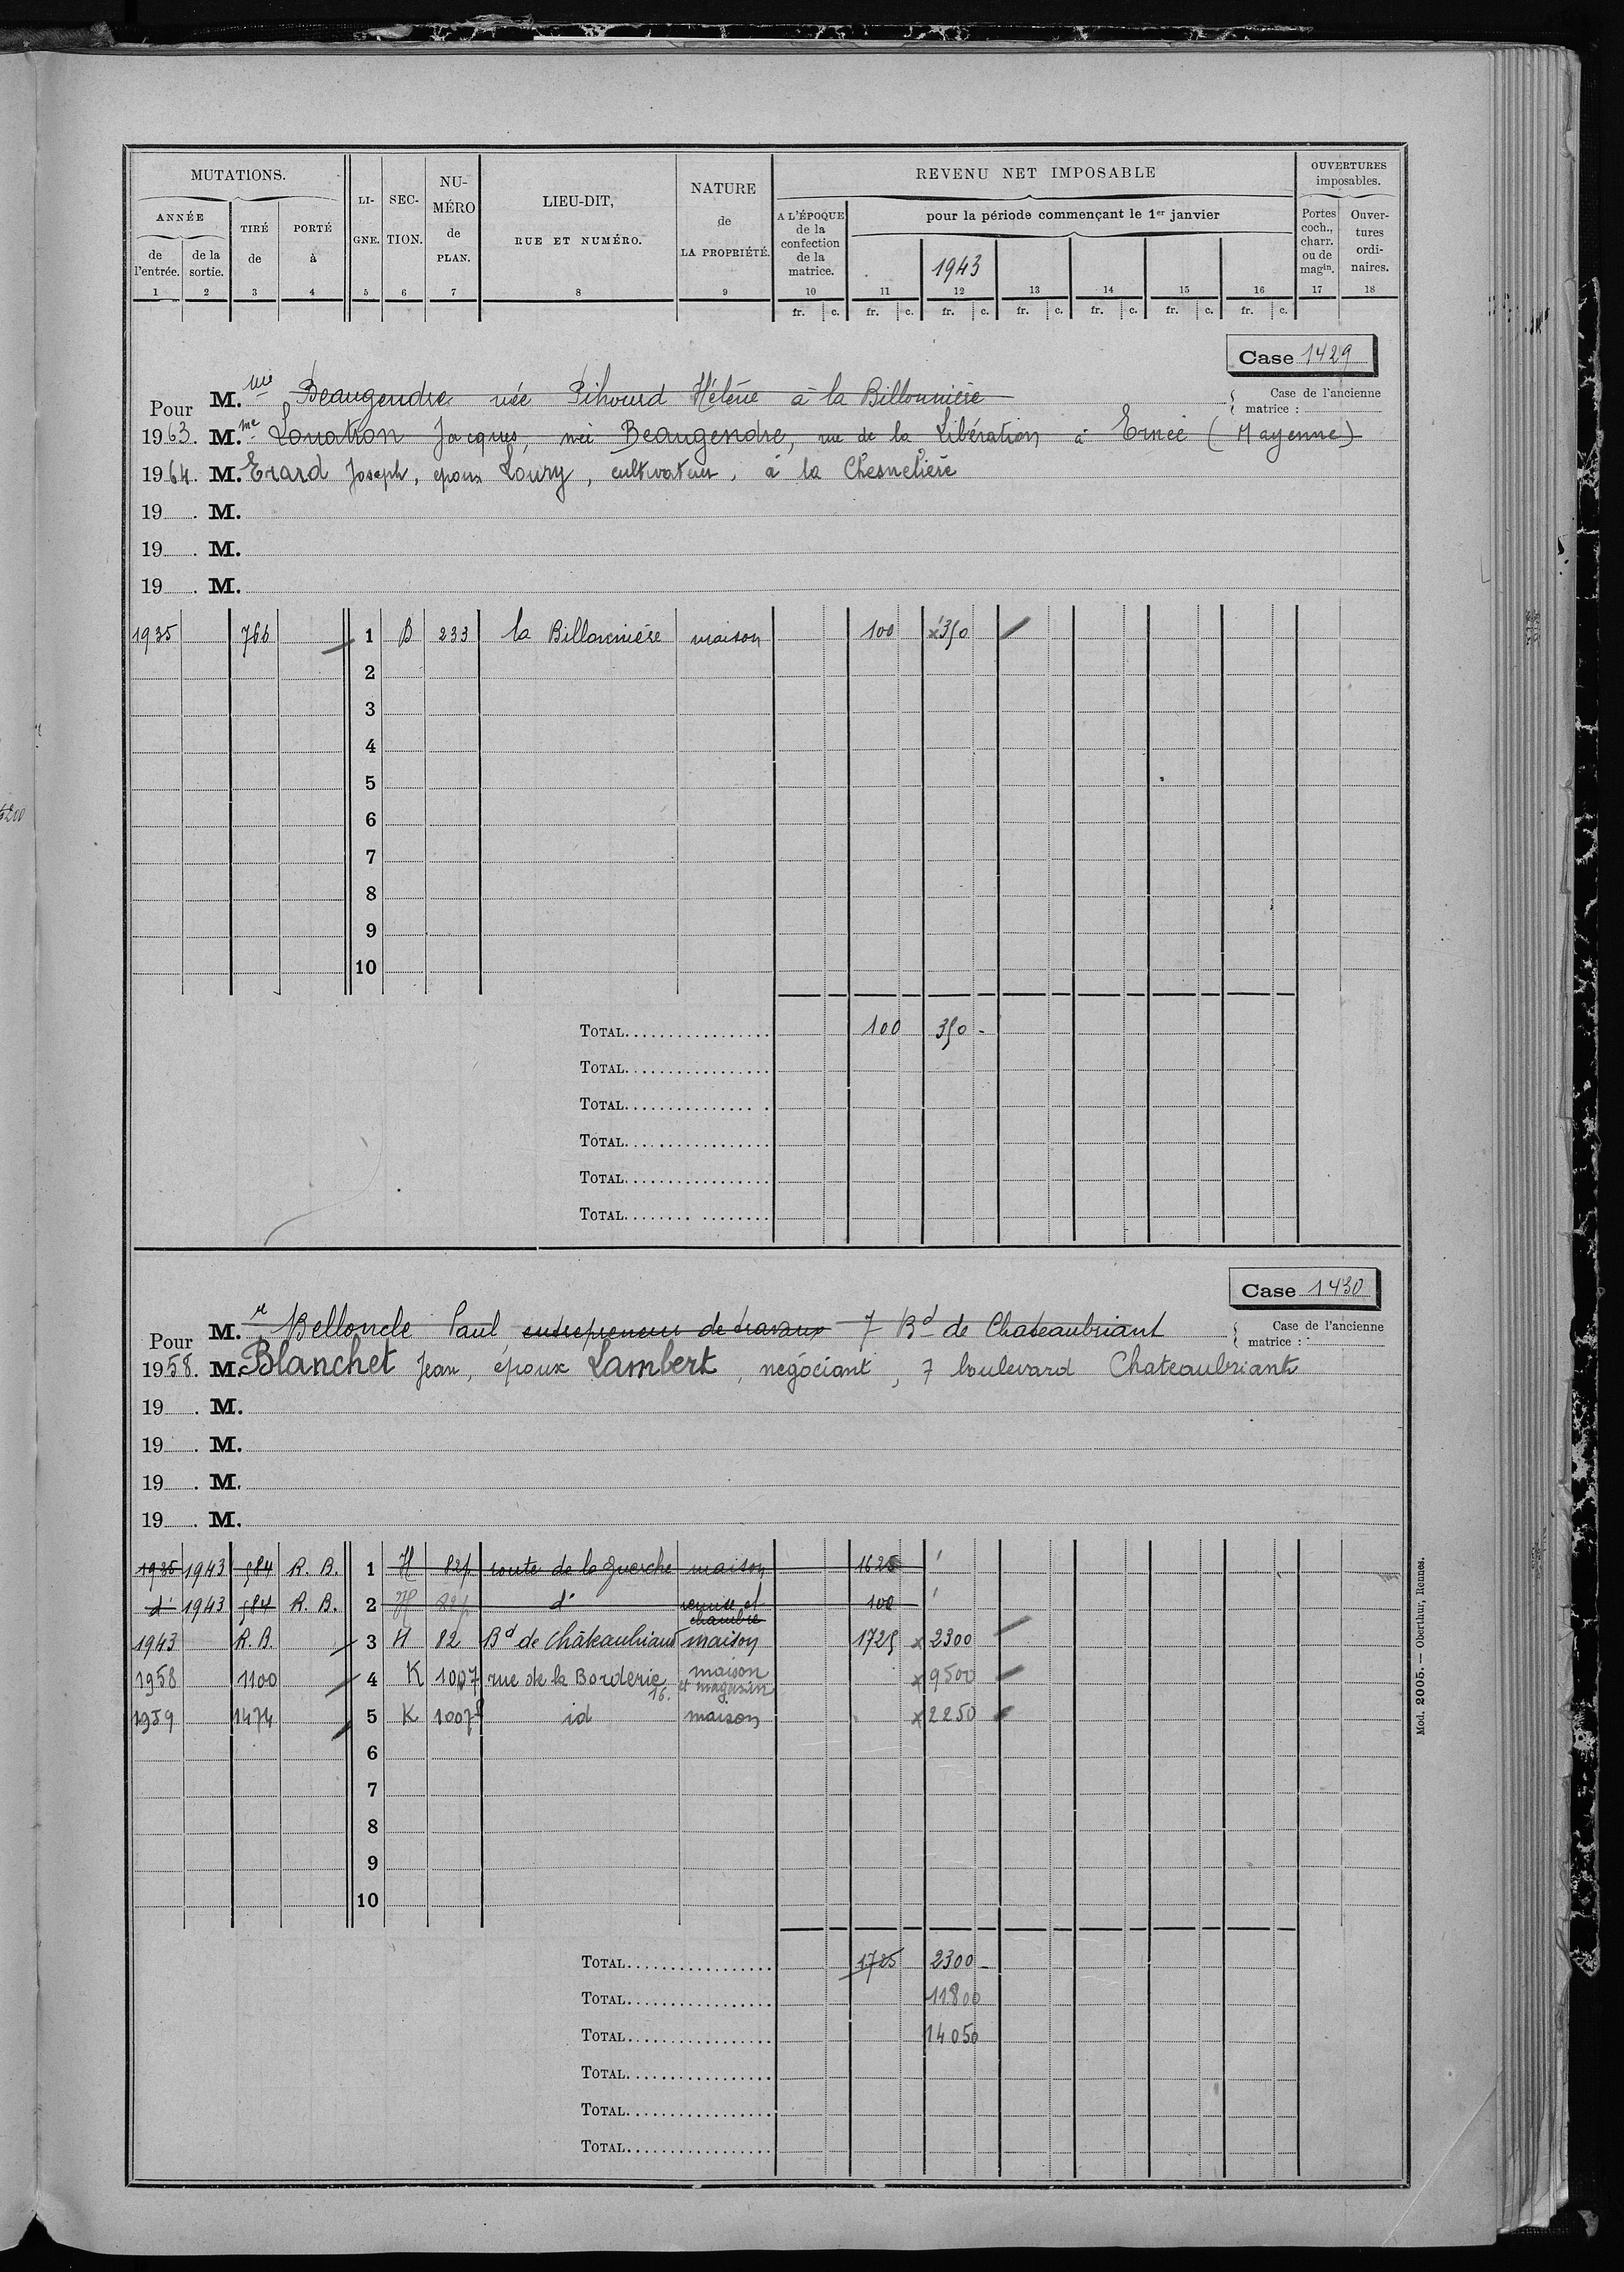 MUTATIONS. LI- SEC- NU- LIEU-DIT, NATURE REVENU NET IMPOSABLE OUVERTURES imposables.
ANNÉE TIRÉ PORTÉ GNE. TION. MÉRO RUE ET NUMÉRO. de A L'ÉPOQUE pour la période commençant le 1er janvier Portes Ouver-
de de la de à de LA PROPRIÉTÉ. de la coch., tures
l'entrée. sortie. PLAN. confection charr. ordi-
de la 1943 ou de naires.
matrice. magin.
1 2 3 4 5 6 7 8 9 10 11 12 13 14 15 16 17 18
fr. c. fr. c. fr. c. fr. c. fr. c. fr. c. fr. c.
Case 1429
Pour M. Beaugendre née Pihourd Hélène à la Billonnière Case de l'ancienne matrice :
1963. M.me Louatron Jacques, née Beaugendre, rue de la Libération à Ernée (Mayenne)
1964. M. Erard Joseph, époux Loury, cultivateur, à la Chesnelière
19 . M.
19 . M.
19 . M.
1935 766 1 B 233 la Billonnière maison 100 x350
2
3
4
5
6
7
8
9
10
TOTAL 100 350 -
TOTAL
TOTAL
TOTAL
TOTAL
TOTAL
Case 1430
Pour M.r Belloncle Paul entrepreneur de travaux 7 Bd de Chateaubriant Case de l'ancienne matrice :
1958. M. Blanchet Jean, époux Lambert, négociant, 7 boulevard Chateaubriant
19 . M.
19 . M.
19 . M.
19 . M.
1935 1943 584 R. B. 1 H 82p route de la Guerche maison 1625
d° 1943 584 R. B. 2 H 82p d° remise et chambre 100
1943 R. B. 3 H 82 Bd de Châteaubriant maison 1725 x 2300
1958 1100 4 K 1007 rue de la Borderie 16. maison et magasin x 9500
1959 1474 5 K 1007p id maison x 2250
6
7
8
9
10
TOTAL 1725 2300 -
TOTAL 11800
TOTAL 14050
TOTAL
TOTAL
TOTAL
Mod. 2005. — Oberthur, Rennes.